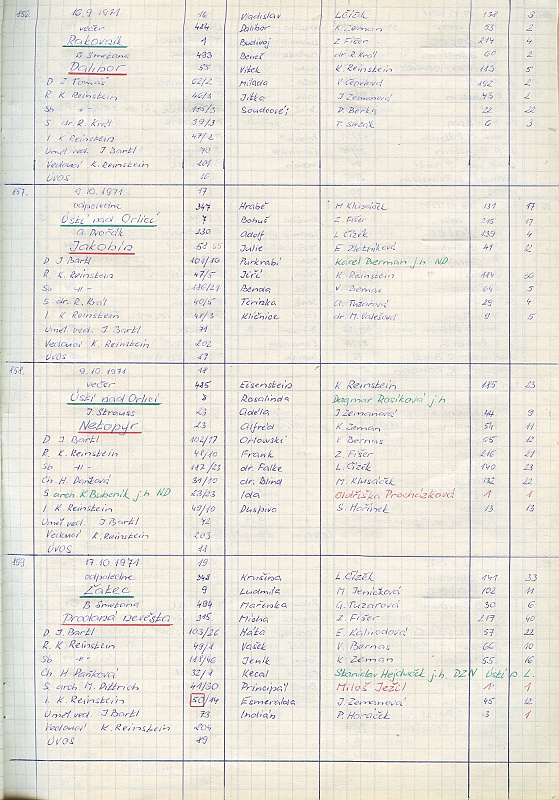 156. 16.9.1971 16 Vladislav L. Čížek 138 3
večer 484 Dalibor K. Zeman 53 2
Rakovník 1 Budivoj Z. Fišer 214 4
B. Smetana 493 Beneš dr. R. Král 60 2
Dalibor 55 Vítek K. Reinstein 113 5
D J. Tomáš 62/2 Milada V. Čepelová 152 2
R K. Reinstein 46/3 Jitka J. Zemanová 43 2
Sb -"- 115/3 Soudcové: D. Berka 22 22
S dr. R. Král 39/3 T. Slezák 6 3
I K. Reinstein 47/2
Uměl. ved. J. Bartl 70
Vedoucí K. Reinstein 201
ÚVOS 16
157. 9.10.1971 17
odpoledne 347 Hrabě M. Klusáček 131 17
Ústí nad Orlicí 7 Bohuš Z. Fišer 215 17
A. Dvořák 130 Adolf L. Čížek 139 4
Jakobín 51 65 Julie E. Zlotníková 41 12
D J. Bartl 101/10 Purkrabí Karel Berman j.h. ND
R K. Reinstein 47/5 Jiří K. Reinstein 114 66
Sb -"- 116/21 Benda V. Bernas 64 5
S dr. R. Král 40/5 Terinka G. Tuzarová 29 4
I K. Reinstein 48/3 Kličnice dr. M. Valešová 9 5
Uměl. ved. J. Bartl 71
Vedoucí K. Reinstein 202
ÚVOS 17
158. 9.10.1971 18
večer 485 Eisenstein K. Reinstein 115 23
Ústí nad Orlicí 8 Rosalinda Dagmar Rosíková j.h.
J. Strauss 23 Adéla J. Zemanová 44 9
Netopýr 23 Alfréd K. Zeman 54 11
D J. Bartl 102/17 Orlowski V. Bernas 65 12
R. K. Reinstein 48/10 Frank Z. Fišer 216 21
Sb -"- 117/23 dr. Falke L. Čížek 140 23
Ch H. Paříková 31/10 dr. Blind M. Klusáček 132 22
S arch K. Bubeník j.h. ND 23/23 Ida Oldřiška Procházková 1 1
I K. Reinstein 49/10 Duspivo S. Hořínek 13 13
Uměl. ved. J. Bartl 72
Vedoucí K. Reinstein 203
ÚVOS 18
159 17.10.1971 19
odpoledne 348 Krušina L. Čížek 141 33
Žatec 9 Ludmila M. Jeničková 102 11
B. Smetana 494 Mařenka G. Tuzarová 30 6
Prodaná nevěsta 315 Mícha Z. Fišer 217 40
D J. Bartl 103/26 Háta E. Kalivodová 57 22
R. K. Reinstein 49/8 Vašek V. Bernas 66 10
Sb -"- 118/46 Jeník K. Zeman 55 16
Ch. H. Paříková 32/8 Kecal Stanislav Hejduček j.h. DZN Ústí n L.
S. arch. M. Dittrich 41/30 Principál Miloš Ježil 1 1
I. K. Reinstein 50/14 Esmeralda J. Zemanová 45 12
Uměl. ved. J. Bartl 73 Indián P. Horáček 3 1
Vedoucí K. Reinstein 204
ÚVOS 19